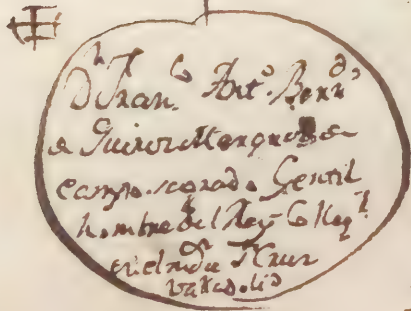 Dn Franco Anto Berndo
de Quiros Marques de
campo sagrado Gentil
hombre del Rey Colleql
en el de Sta Cruz
valladolid